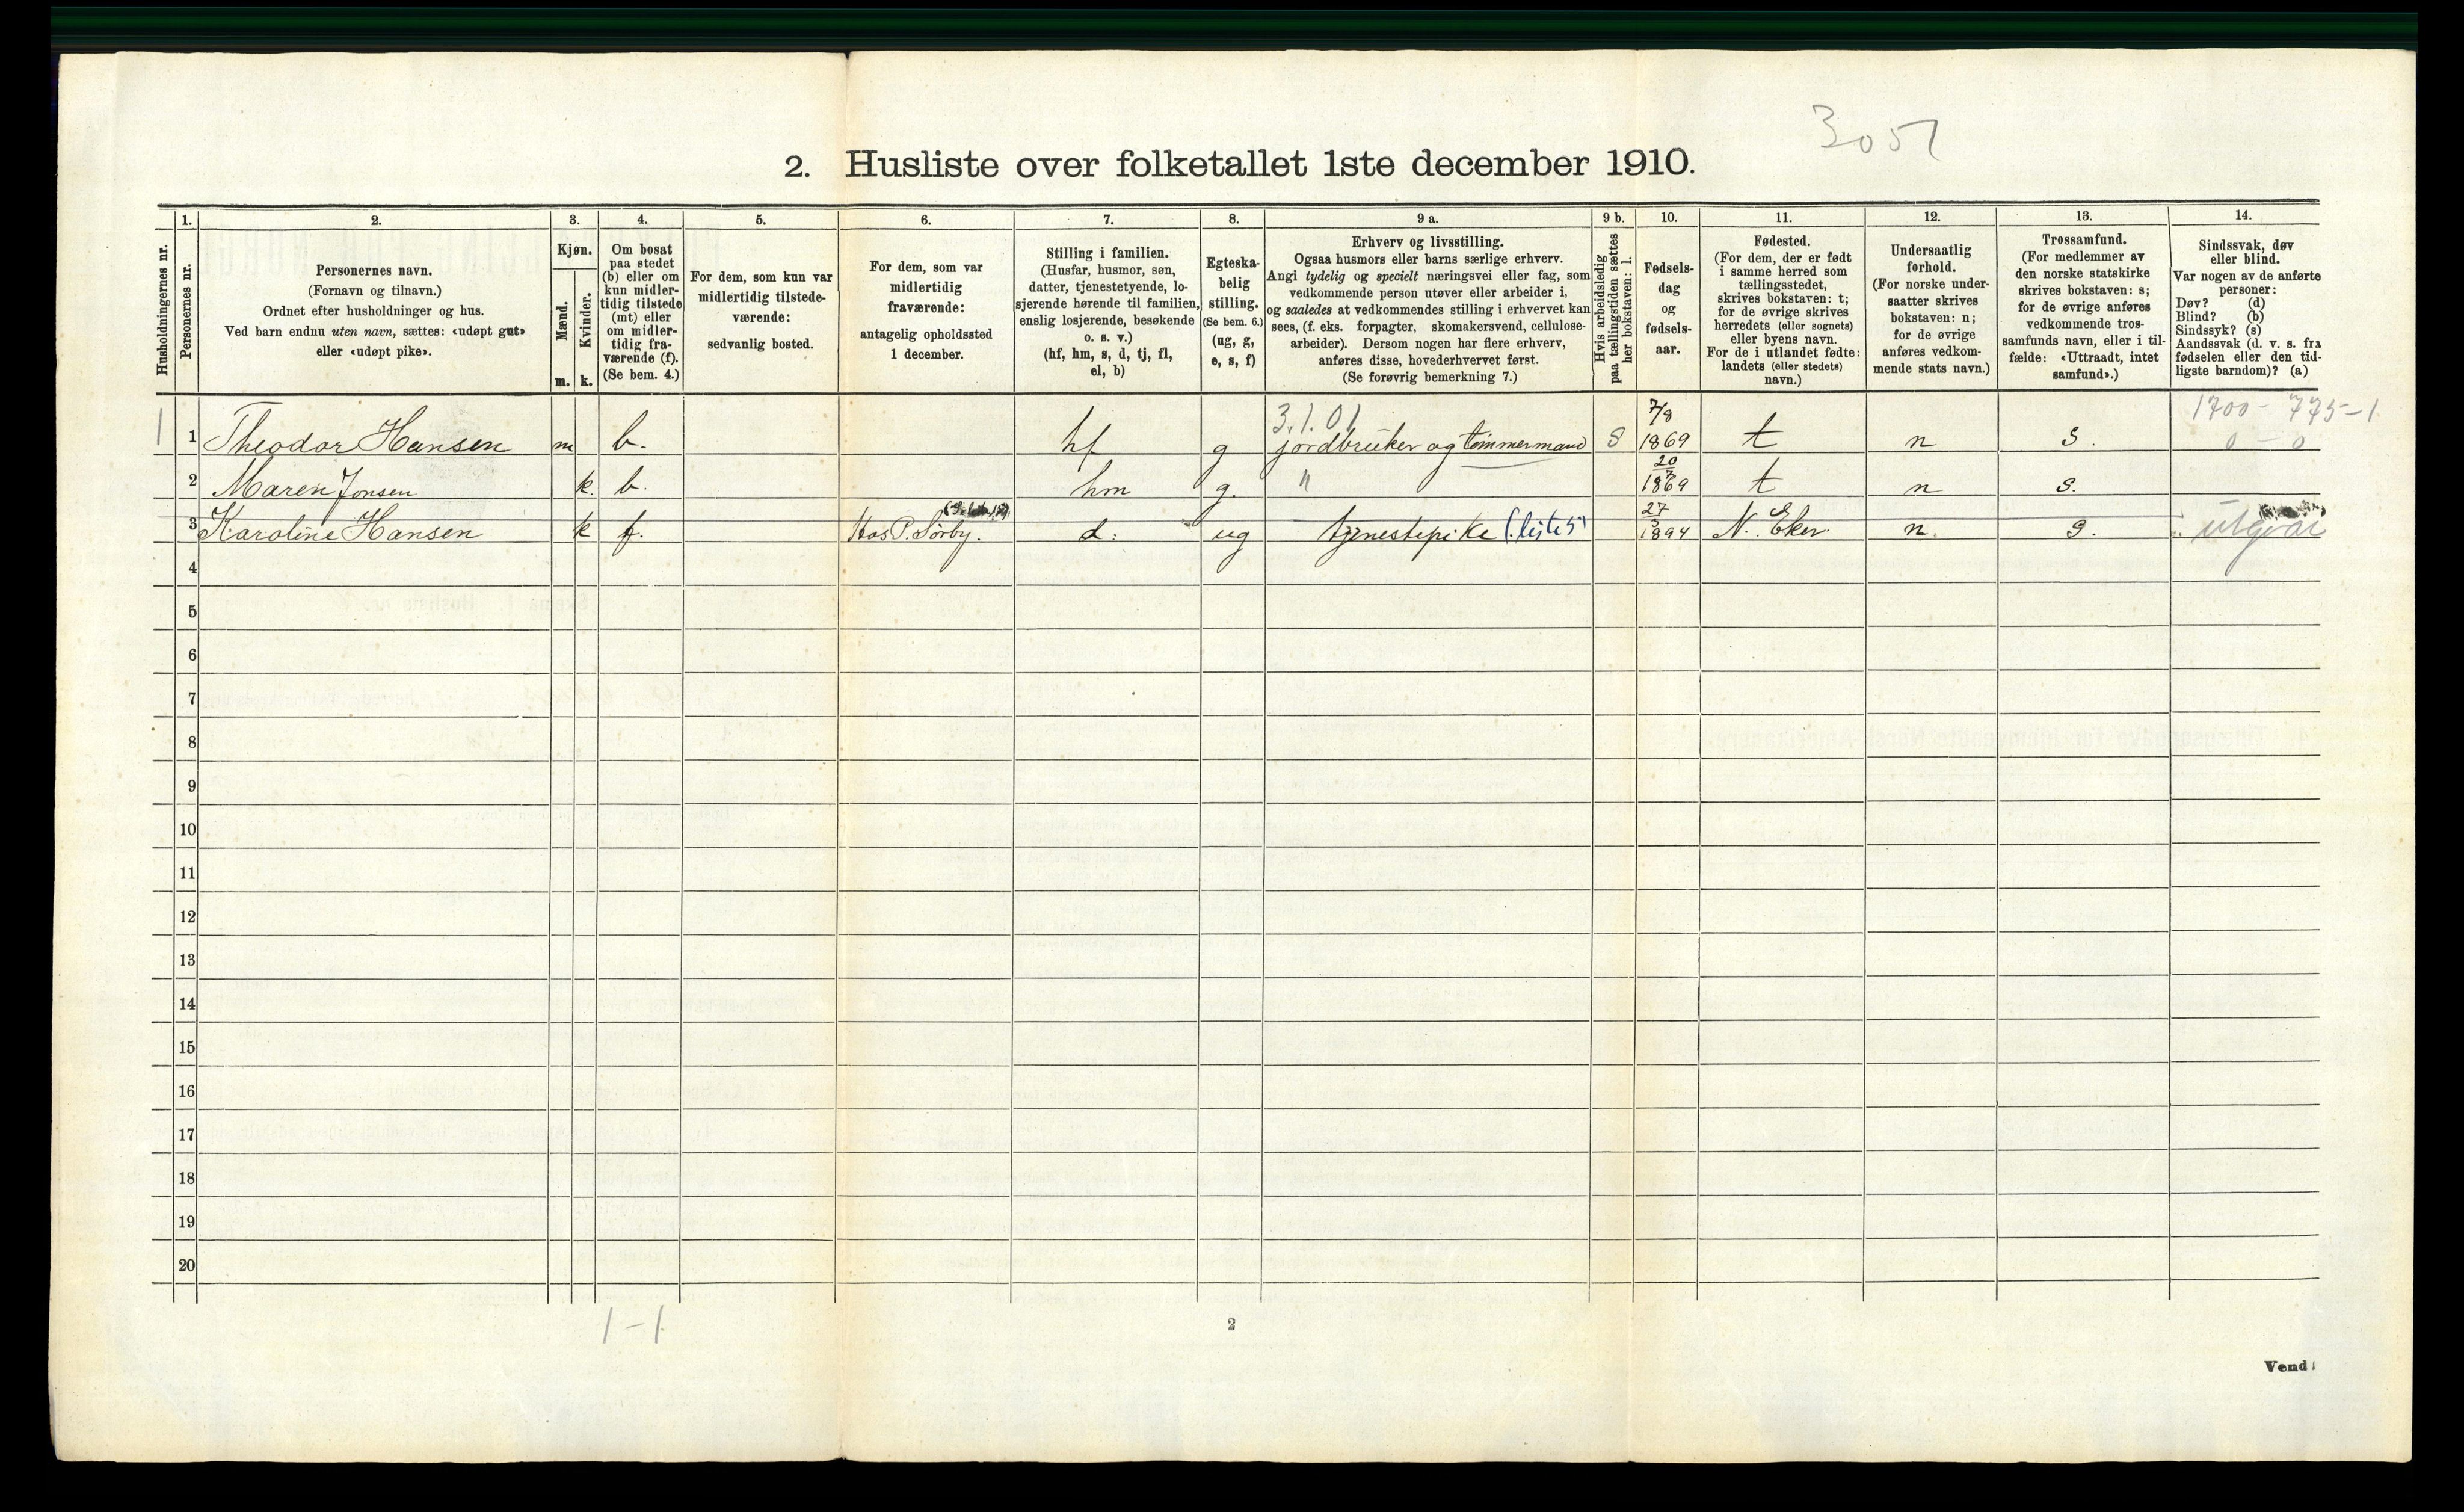 3057
2. Husliste over folketallet 1ste december 1910.
Husholdningernes nr.
1.
Personernes nr.
2.
Personernes navn.
(Fornavn og tilnavn.)
Ordnet efter husholdninger og hus.
Ved barn endnu uten navn, sættes: «udøpt gut»
eller «udøpt pike».
3.
Kjøn.
Mænd.
Kvinder.
m. k.
4.
Om bosat
paa stedet
(b) eller om
kun midler-
tidig tilstede
(mt) eller
om midler-
tidig fra-
værende (f).
(Se bem. 4.)
5.
For dem, som kun var
midlertidig tilstede-
værende:
sedvanlig bosted.
6.
For dem, som var
midlertidig
fraværende:
antagelig opholdssted
1 december.
7.
Stilling i familien.
(Husfar, husmor, søn,
datter, tjenestetyende, lo-
sjerende hørende til familien,
enslig losjerende, besøkende
o. s. v.)
(hf, hm, s, d, tj, fl,
el, b)
8.
Egteska-
belig
stilling.
(Se bem. 6.)
(ug, g,
e, s, f)
9 a.
Erhverv og livsstilling.
Ogsaa husmors eller barns særlige erhverv.
Angi tydelig og specielt næringsvei eller fag, som
vedkommende person utøver eller arbeider i,
og saaledes at vedkommendes stilling i erhvervet kan
sees, (f. eks. forpagter, skomakersvend, cellulose-
arbeider). Dersom nogen har flere erhverv,
anføres disse, hovederhvervet først.
(Se forøvrig bemerkning 7.)
9 b.
Hvis arbeidsledig
paa tællingstiden sættes
her bokstaven: l.
10.
Fødsels-
dag
og
fødsels-
aar.
11.
Fødested.
(For dem, der er født
i samme herred som
tællingsstedet,
skrives bokstaven: t;
for de øvrige skrives
herredets (eller sognets)
eller byens navn.
For de i utlandet fødte:
landets (eller stedets)
navn.)
12.
Undersaatlig
forhold.
(For norske under-
saatter skrives
bokstaven: n;
for de øvrige
anføres vedkom-
mende stats navn.)
13.
Trossamfund.
(For medlemmer av
den norske statskirke
skrives bokstaven: s;
for de øvrige anføres
vedkommende tros-
samfunds navn, eller i til-
fælde: «Uttraadt, intet
samfund».)
14.
Sindssvak, døv
eller blind.
Var nogen av de anførte
personer:
Døv? (d)
Blind? (b)
Sindssyk? (s)
Aandssvak (d. v. s. fra
fødselen eller den tid-
ligste barndom)? (a)
3.1.01 7/8 1700 - 775-1
1 1 Theodor Hansen m b. hf g jordbruker og tømmermand S 1869 t n s. 0 - 0
20/7
2 Maren Jonsen k. b. hm g. " 1869 t n s.
27/3
3 Karoline Hansen k f. Hos P. Sørby. d. ug tjenestepike (liste 5) 1894 N. Eker. n. s. utgaar
4
5
6
7
8
9
10
11
12
13
14
15
16
17
18
19
20
1-1
2
Vend!